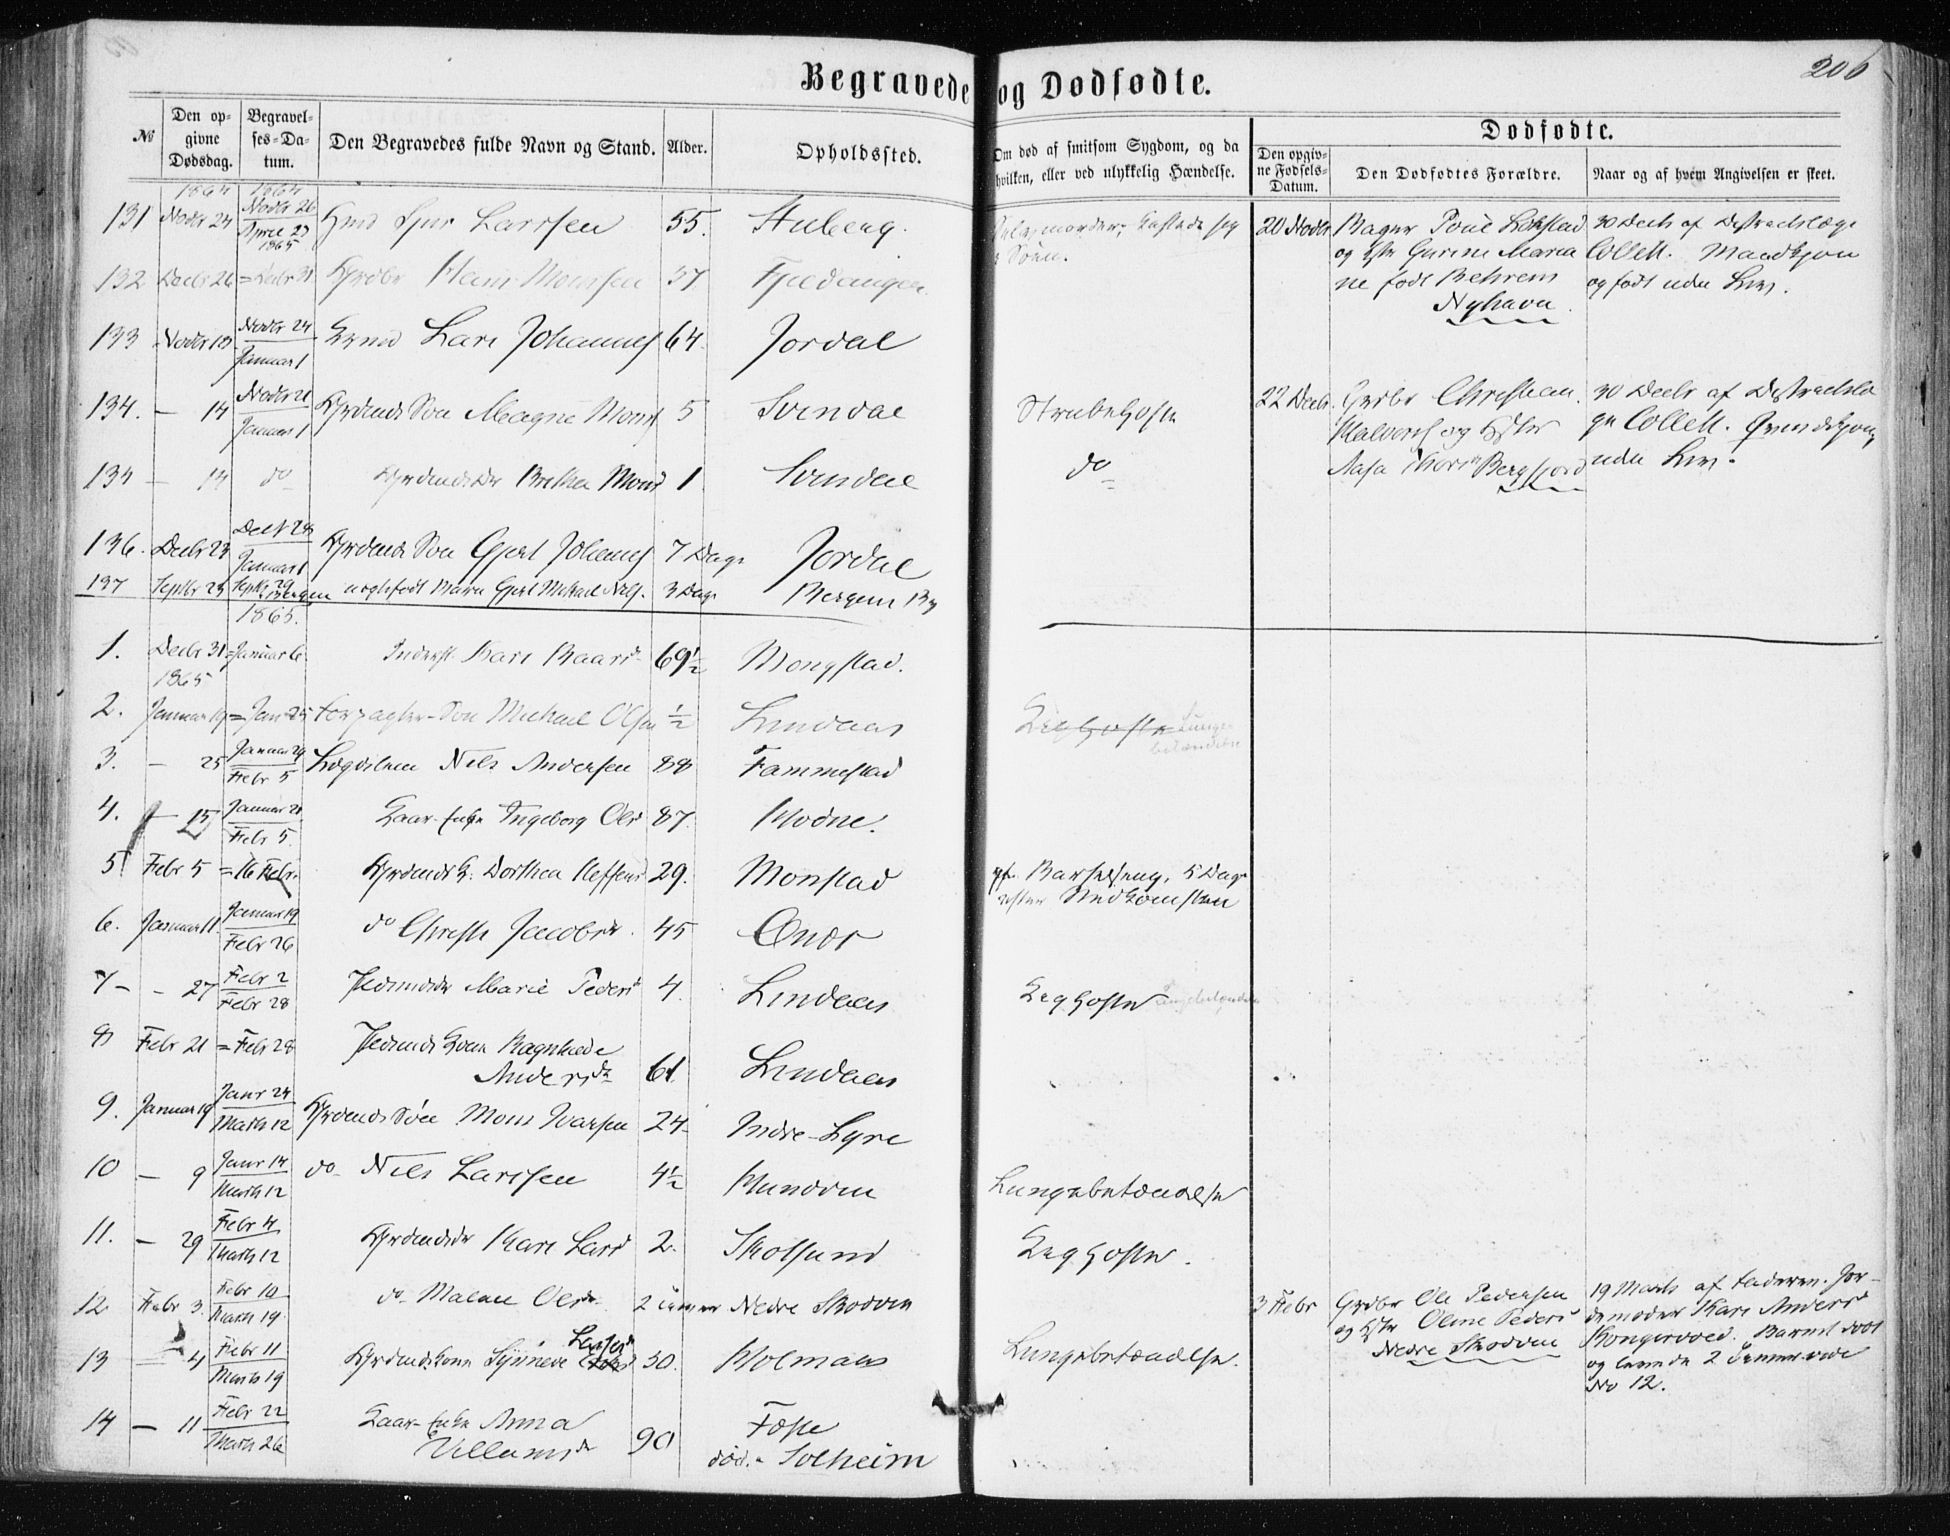 206
Begravede og Dødfødte.
№
Den opgivne Dødsdag.
Begravelses-Datum.
Den Begravedes fulde Navn og Stand.
Alder.
Opholdssted.
Om død af smitsom Sygdom, og da hvilken, eller ved ulykkelig Hændelse.
Dødfødte.
Den opgivne Fødsels-Datum.
Den Dødfødtes Forældre.
Naar og af hvem Angivelsen er skeet.
1864 1864
131 Novbr 24 Novbr 26 April 23 1865 Larssen 55. Stuberg. Selvmorder; kastede sig i Søen.
20 Novbr Bager Poul Lokstad og Hustr Gurine Mariane født Behrens Nyhavn.
30 Decb af Distrachslæge Collett. Mandkjøn og født uden Liv.
132 Decbr 26 = Decbr 31 Grdbr Hans Monssen 37 Fjeldanger
133 Novbr 13 Novbr 24 Januar 1 Lars Johannes 64. Jordal
134. — 14 Novbr 21 Januar 1 Grdmds Søn Magne Mons 5 Svindal Strubehoste
22 Decbr. Grdbr Christian Halvors og Hstr Aasa Thors Bergfjord
30 Decbr af Distrachslæge Collett. Qvindekjøn, uden Liv.
134 — 14 do Grdmds Dtr Brethe Mons 1 Svindal do
136. Decbr 23 Decbr 28 Januar 1 Grdmds Søn Gjert Johannes 7 Dage Jordal
137 Septbr 25 Septb 29 Bergen uægtefødt Barn Gjert Michael 3 Dage Bergens By
1865.
1. Decbr 31 = Januar 6 Inderst Kari Baars 69½ Mongstad.
1865
2. Januar 19 = Jan 25 Forpagter-Søn Michael Olsen ½ Lindaas Kighoste Lungebetændelse
3. — 25 Januar 29 Febr 5 Lægdslem Nils Andersen 88 Fammestad
4. — 15 Januar 21 Febr 5. Kaar-Enke Ingeborg Ols 87. Hodne.
5 Febr 5 = 16 Febr. Grdmds K: Dorthea Steffens 29. Monstad Barselseng, 5 Dage efter Nedkomsten
6. Januar 11. Januar 19 Febr 26 do Christi Jacobsdr. 45 Onar
7 - - 27 Febr 2 Febr 28 Marie Peders 4. Lindaas Kighoste Lungebetændelse
8 Febr 21 = Febr 28 Kone Ragnhilde Andersdr 61. Lindaas
9. Januar 19 Janr 24 Marts 12 Grdmds Søn Mons Ivarsen 24 Indre-Lyre
10 — 9 Janr 14 Marts 12 do Nils Larssen 4½ Hundven Lungebetændelse
11. — 29 Febr 4 Marts 12 Grdmdsdr Kari Lars 2. Skolsund Kighoste.
12 Febr 3. Febr 10 Marts 19. do Malene Olsdr 2 Timer Nedre Skodven
3 Febr Grdbr Ole Pedersen og Hstr Oline Peders Nedre Skodven
19 Marts af Faderen. Jordemoder Kari Anders Kongsvold. Barnet født og levede 2 Timer vide No 12.
13 — 4 Febr 11 Marts 19 Grdmdskone Synneve Larsd 30. Holmaas Lungebetændelse.
14 — 11 Febr 22 Marts 26 Kaar-Enke Anna Villumsdr 90 Foske død. Solheim